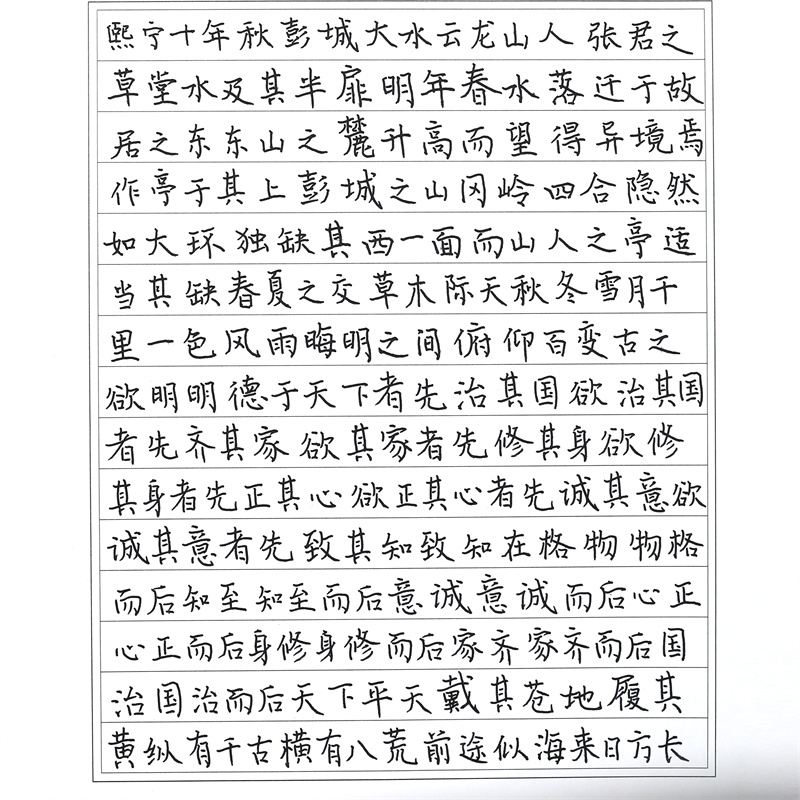 熙宁十年秋彭城大水云龙山人张君之
草堂水及其半扉明年春水落迁于故
居之东东山之麓升高而望得异境焉
作亭于其上彭城之山冈岭四合隐然
如大环独缺其西一面而山人之亭适
当其缺春夏之交草木际天秋冬雪月千
里一色风雨晦明之间俯仰百变古之
欲明明德于天下者先治其国欲治其国
者先齐其家欲其家者先修其身欲修
其身者先正其心欲正其心者先诚其意欲
诚其意者先致其知致知在格物物格
而后知至知至而后意诚意诚而后心正
心正而后身修身修而后家齐家齐而后国
治国治而后天下平天戴其苍地履其
黄纵有千古横有八荒前途似海来日方长